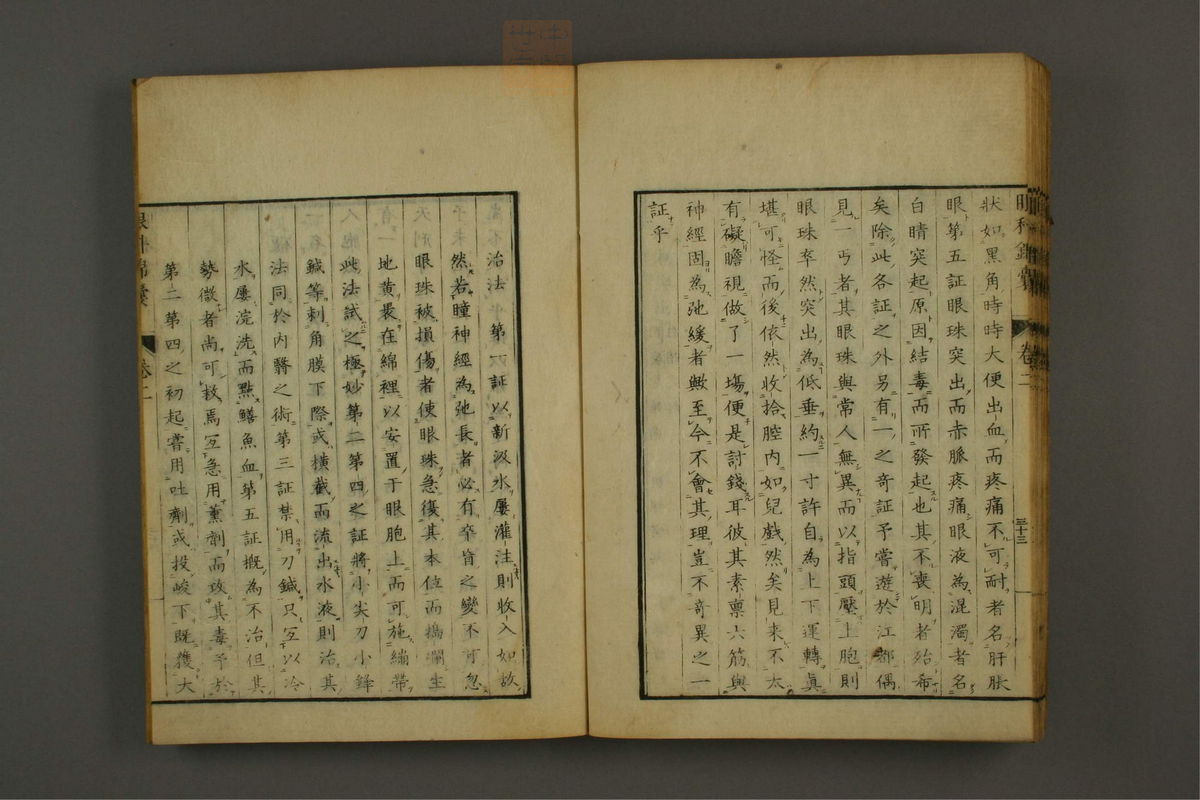 眼科錦囊 卷二 三十三
状如黒角時時大便出血而疼痛不可耐者名肝脹
眼第五証眼珠突出而赤脈疼痛眼液為混濁者名
白睛突起原因結毒而所發起也其不喪明者殆希
矣除此各証之外另有一之奇証予嘗遊於江都偶
見一丐者其眼珠與常人無異而以指頭壓上胞則
眼珠卒然突出為低垂約一寸許自為上下運轉眞
堪可怪而後依然收拾腔內如兒戲然矣見来不太
有礙瞻視做了一塲便是討錢耳彼其素禀六筋與
神經固為弛緩者歟至今不會其理豈不奇異之一
証乎
治法 第一証以新汲水屢灌注則收入如故
然若瞳神經為弛長者必有卒盲之變不可忽
眼珠被損傷者使眼珠急復其本位而搗爛生
地黄裹在綿裡以安置于眼胞上而可施繃帶
此法試之極妙第二第四之証將小尖刀小鋒
鍼等刺角膜下際或橫截而流出水液則治其
法同於內醫之術第三証禁用刀鍼只宜以冷
水屢浣洗而點鱔魚血第五証概為不治但其
勢微者尚可救焉宜急用薰劑而攻其毒予於
第二第四之初起嘗用吐劑或投峻下既獲大
眼科錦囊 卷二